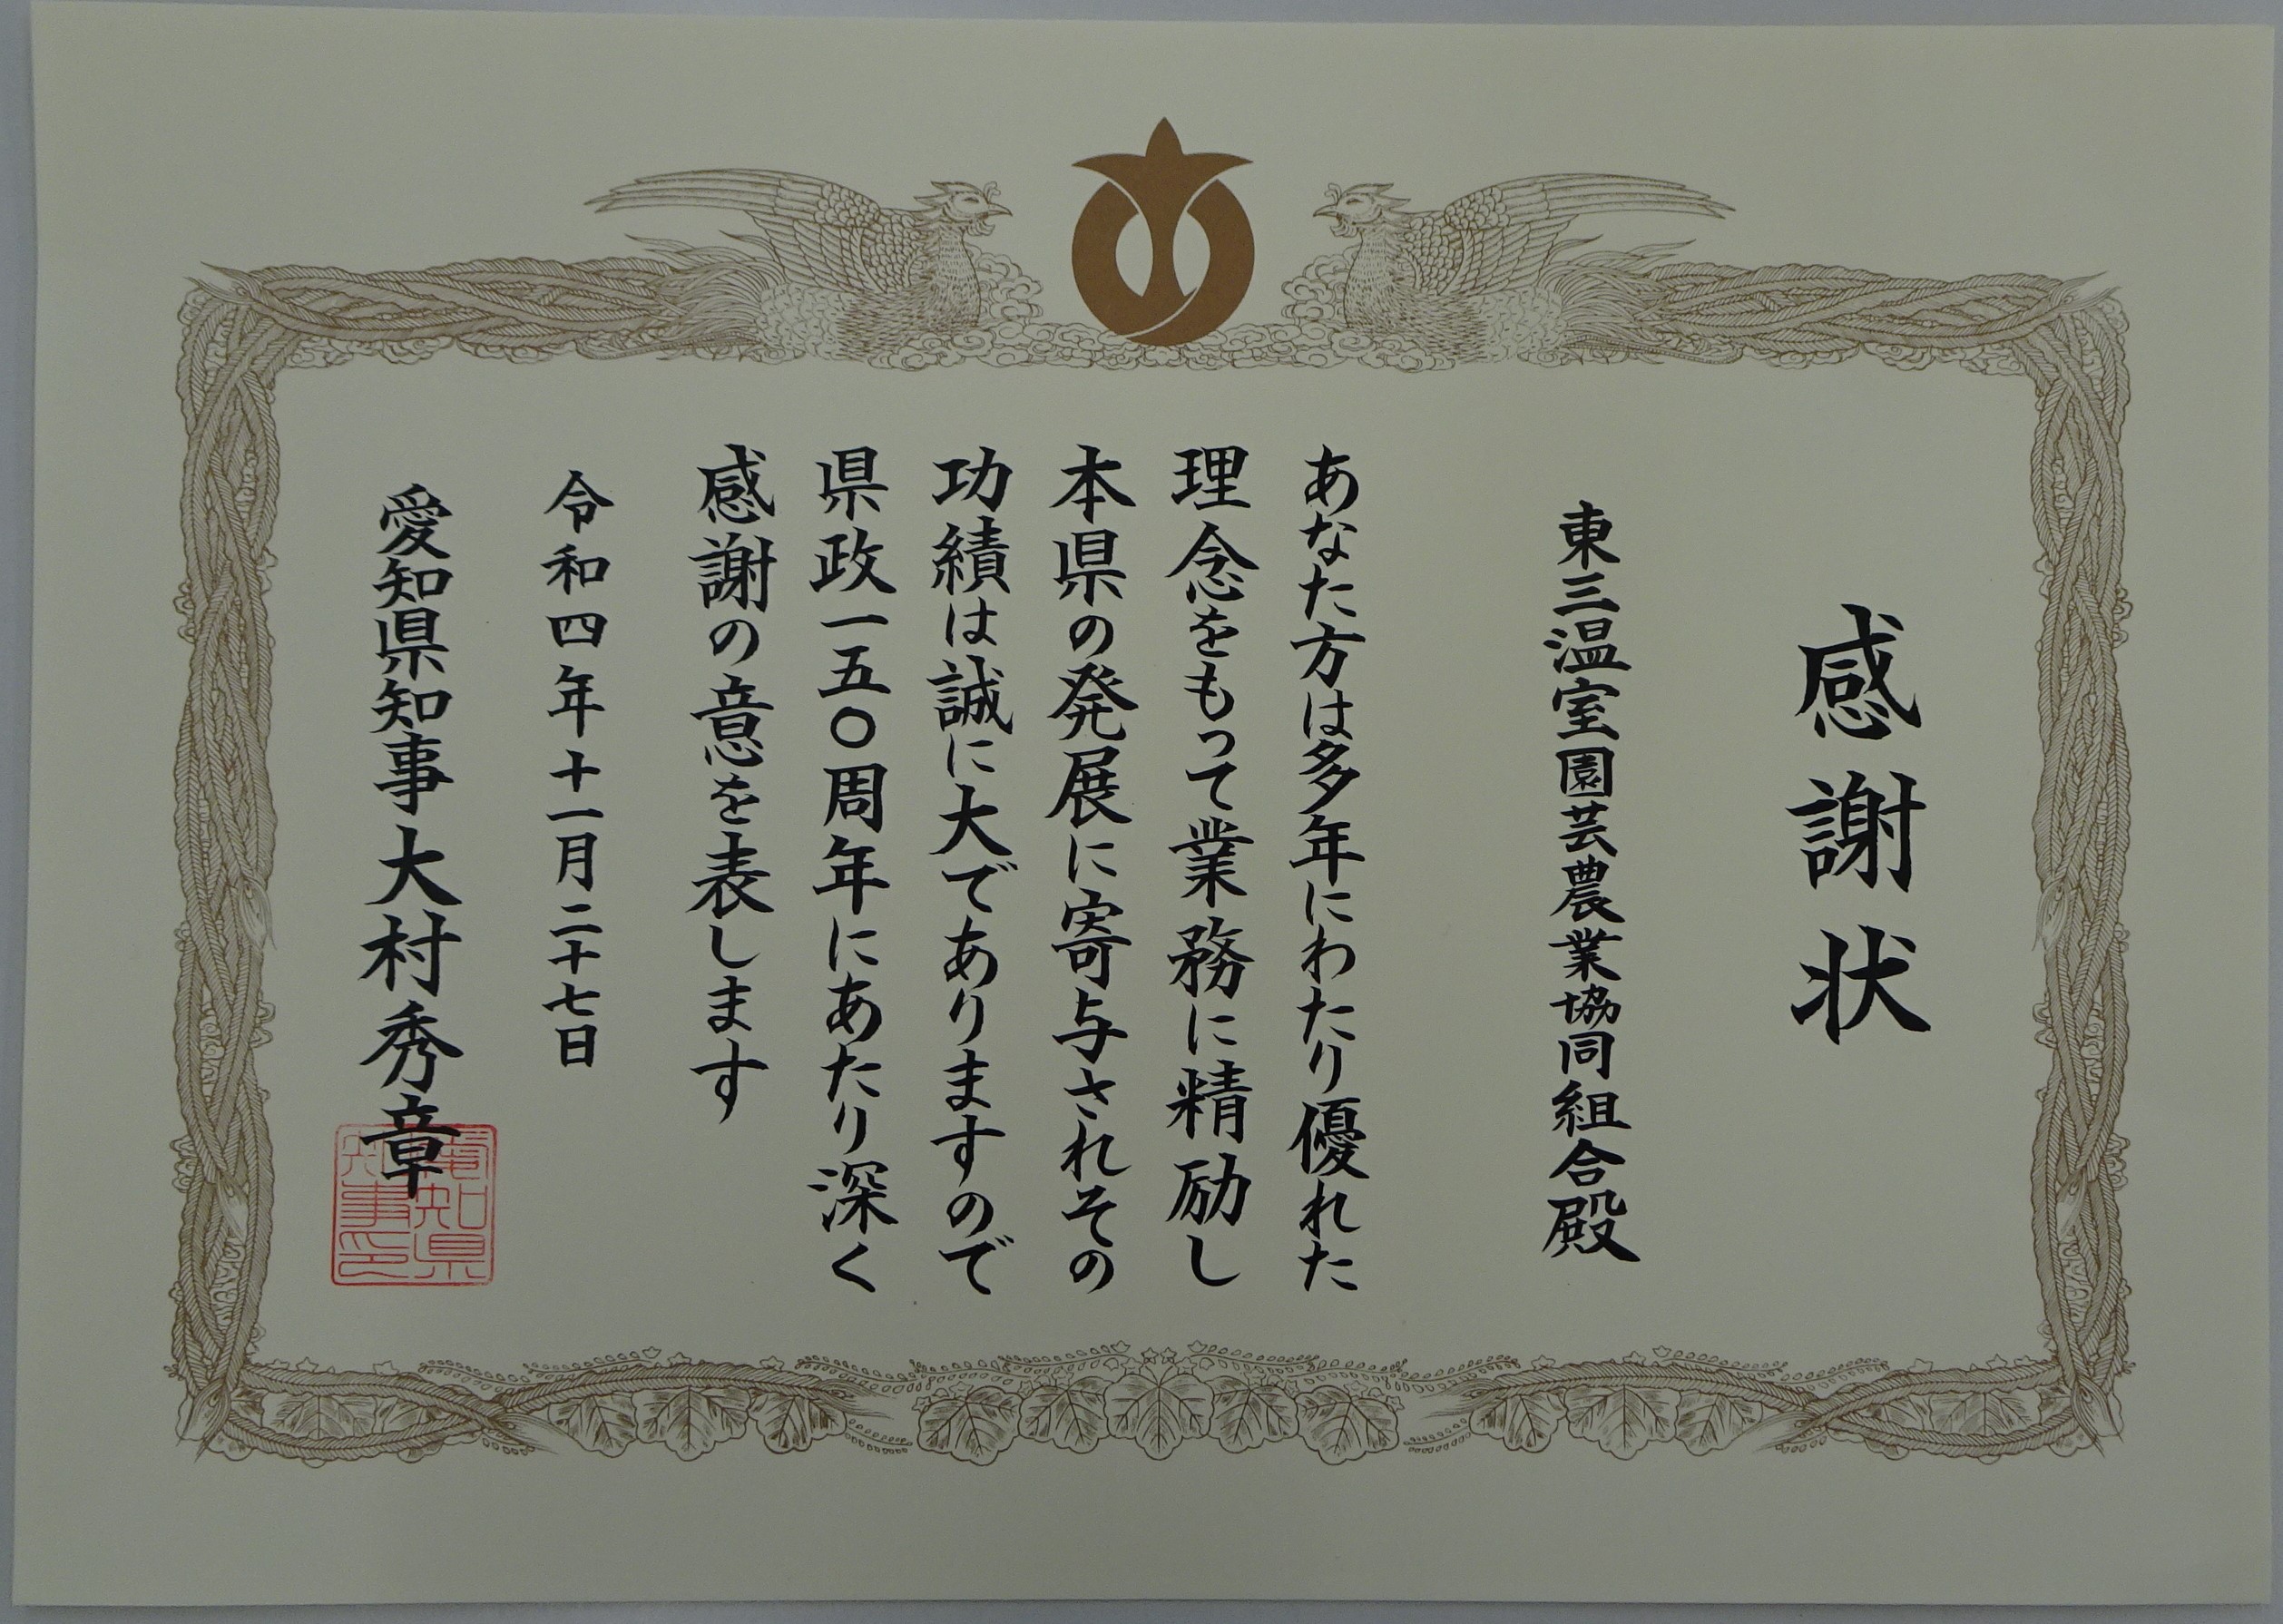 感謝状
東三温室園芸農業協同組合殿
あなた方は多年にわたり優れた
理念をもって業務に精励し
本県の発展に寄与されその
功績は誠に大でありますので
県政一五〇周年にあたり深く
感謝の意を表します
令和四年十一月二十七日
愛知県知事大村秀章
愛知県
知事印